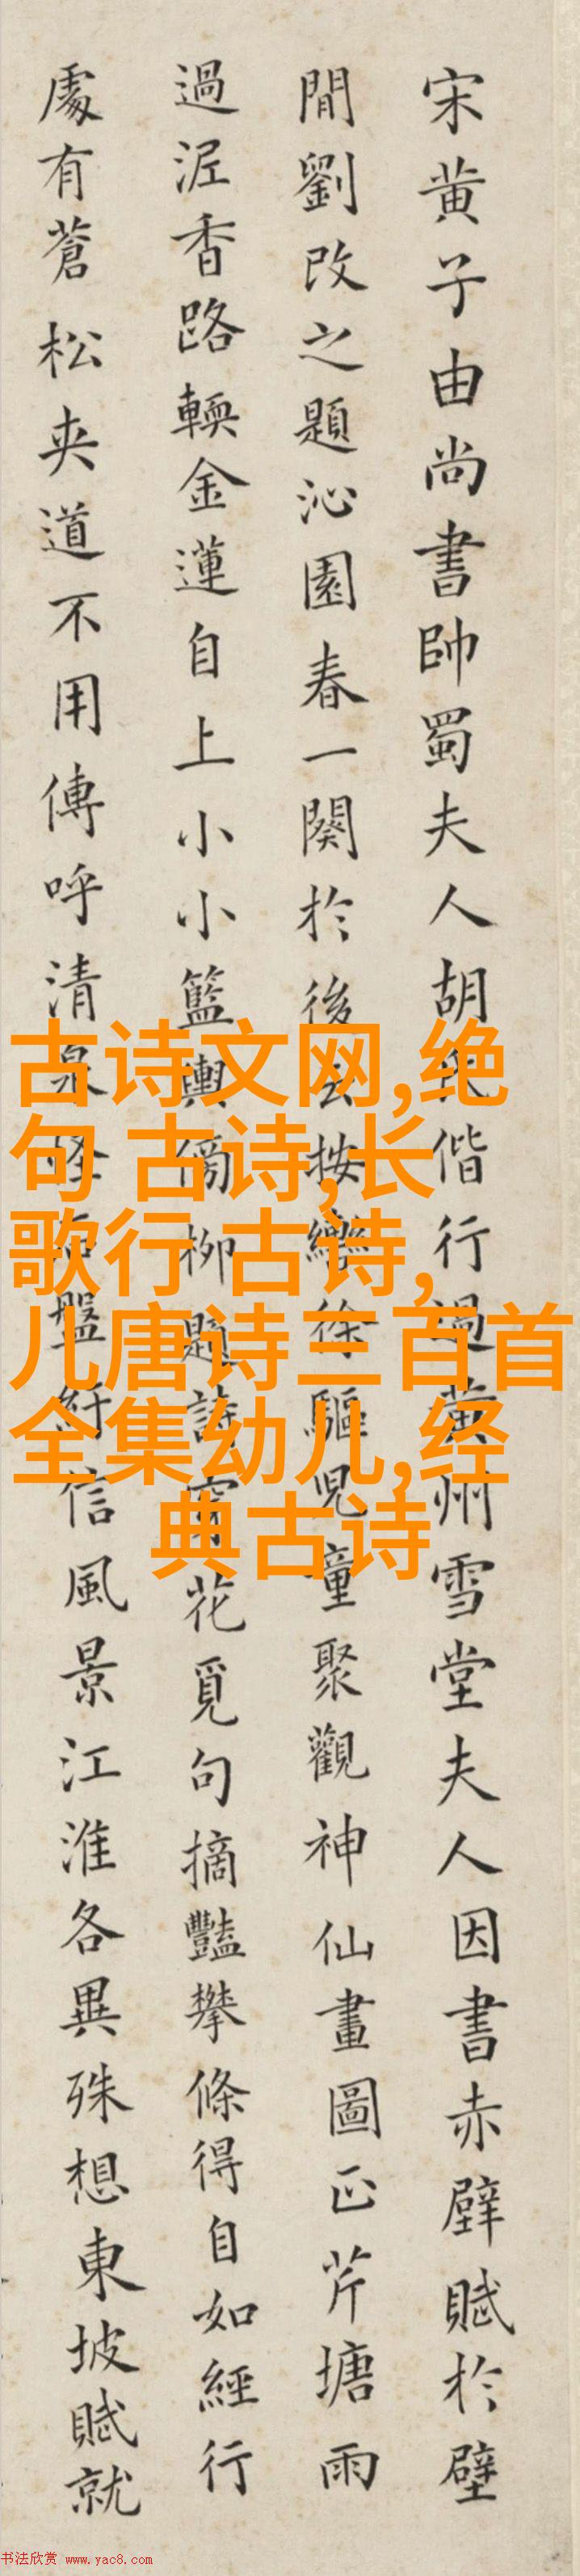 宋黄子由尚書帥蜀夫人胡氏偕行過黄州雪堂夫人因書赤壁賦於壁
間劉改之題沁園春一闋於後云按轡徐驅兒童聚觀神仙畫圖正芹塘雨
過泥香路輭金蓮自上小小籃輿傍柳題詩穿花覓句摘豔攀條得自如經行
處有蒼松夾道不用傳呼清泉怪石盤紆信風景江淮各異殊想東坡賦就
古诗文网,绝
句 古诗,长
歌行 古诗,
儿唐诗三百首
全集幼儿,经
典古诗
书法欣赏 www.yac8.com